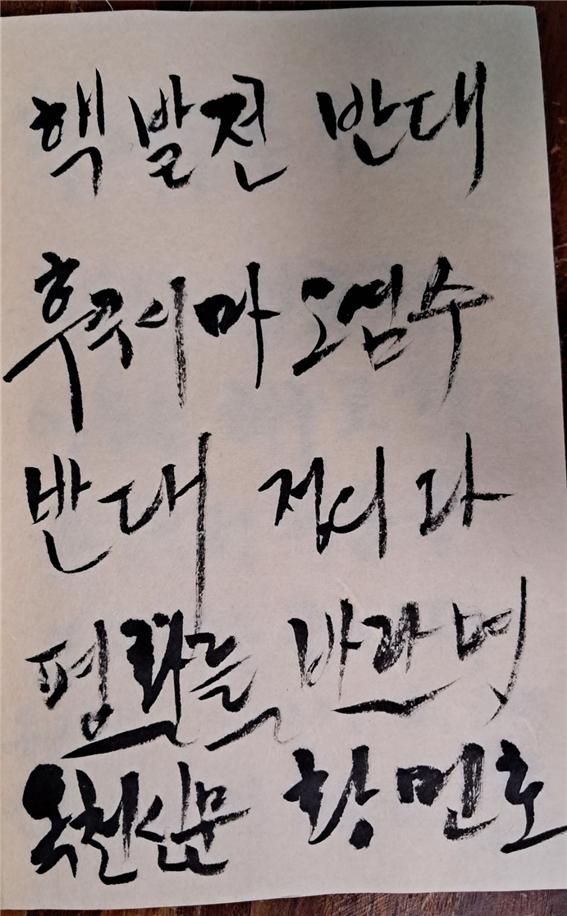 핵발전 반대
후쿠시마 오염수
반대 접어라
평화를 바라며
옥천신문 황민호